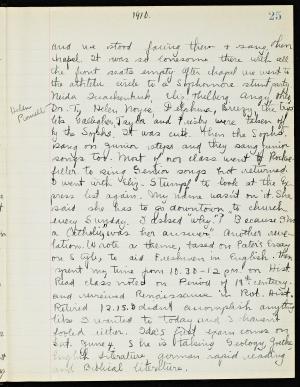 1910.
25
and we stood facing them & sang them
chapel. It was so lonesome there with all
the front seats empty after chapel we went to
the athletic circle to a Sophomore stunt party.
Helen
Dr. Ty, Helen Noyes, Delphine, Breezy, the trips
like Gallagher, Taylor and Frisby were taken off
by the Sophs. It was cute. Then the Sophs
sang on junior steps and they sang junior
songs too. Most of our class went to Rocke-
feller to sing Senior songs but returned.
I went with "Eliz. Stumpf" to look at the Ex-
press list again. My name wasn't on it. She
said she has to go downtown to church
every Sunday. I asked "why?" "Because I'm
a Catholic" was her answer. Another reve-
lation. Wrote a theme, based on Pater's Essay
on Style, to aid Freshmen in English. Then
spent my time from 10.30-12 p.m. on Hist.
Read class notes on Period of 19th century
and reviewed Renaissance in Hist.
Retired 12.15. I didn't accomplish anything
like I wanted to today and I haven't
loafed either. Ide's first exam comes on
Sat. June 4. She is taking Geology, Greek,
English Literature, german rapid reading
and Biblical literature.